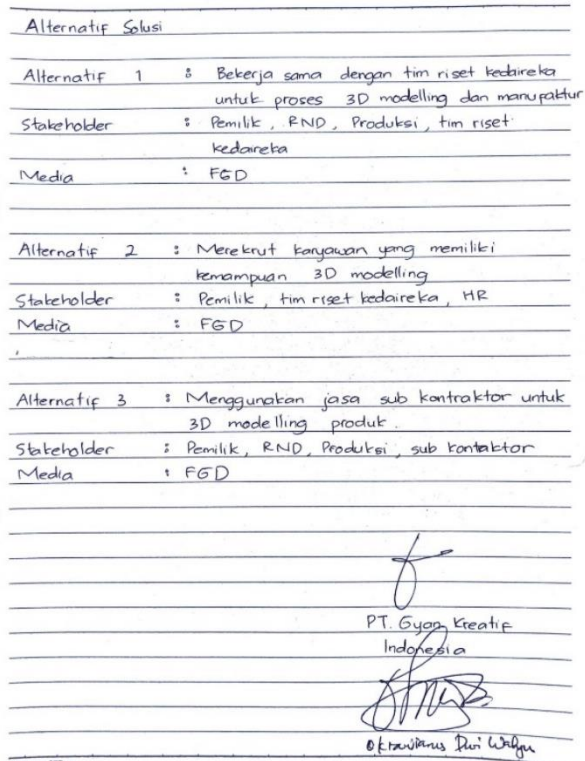 Alternatif Solusi
Alternatif 1 : Bekerja sama dengan tim riset kedaireka
untuk proses 3D modelling dan manufaktur
Stakeholder : Pemilik, RND, Produksi, tim riset
kedaireka
Media : FGD
Alternatif 2 : Merekrut karyawan yang memiliki
kemampuan 3D modelling
Stakeholder : Pemilik, tim riset kedaireka, HR
Media : FGD
Alternatif 3 : Menggunakan jasa sub kontraktor untuk
3D modelling produk.
Stakeholder : Pemilik, RND, Produksi, sub kontaktor
Media : FGD
PT. Gyan Kreatif
Indonesia
Dwi